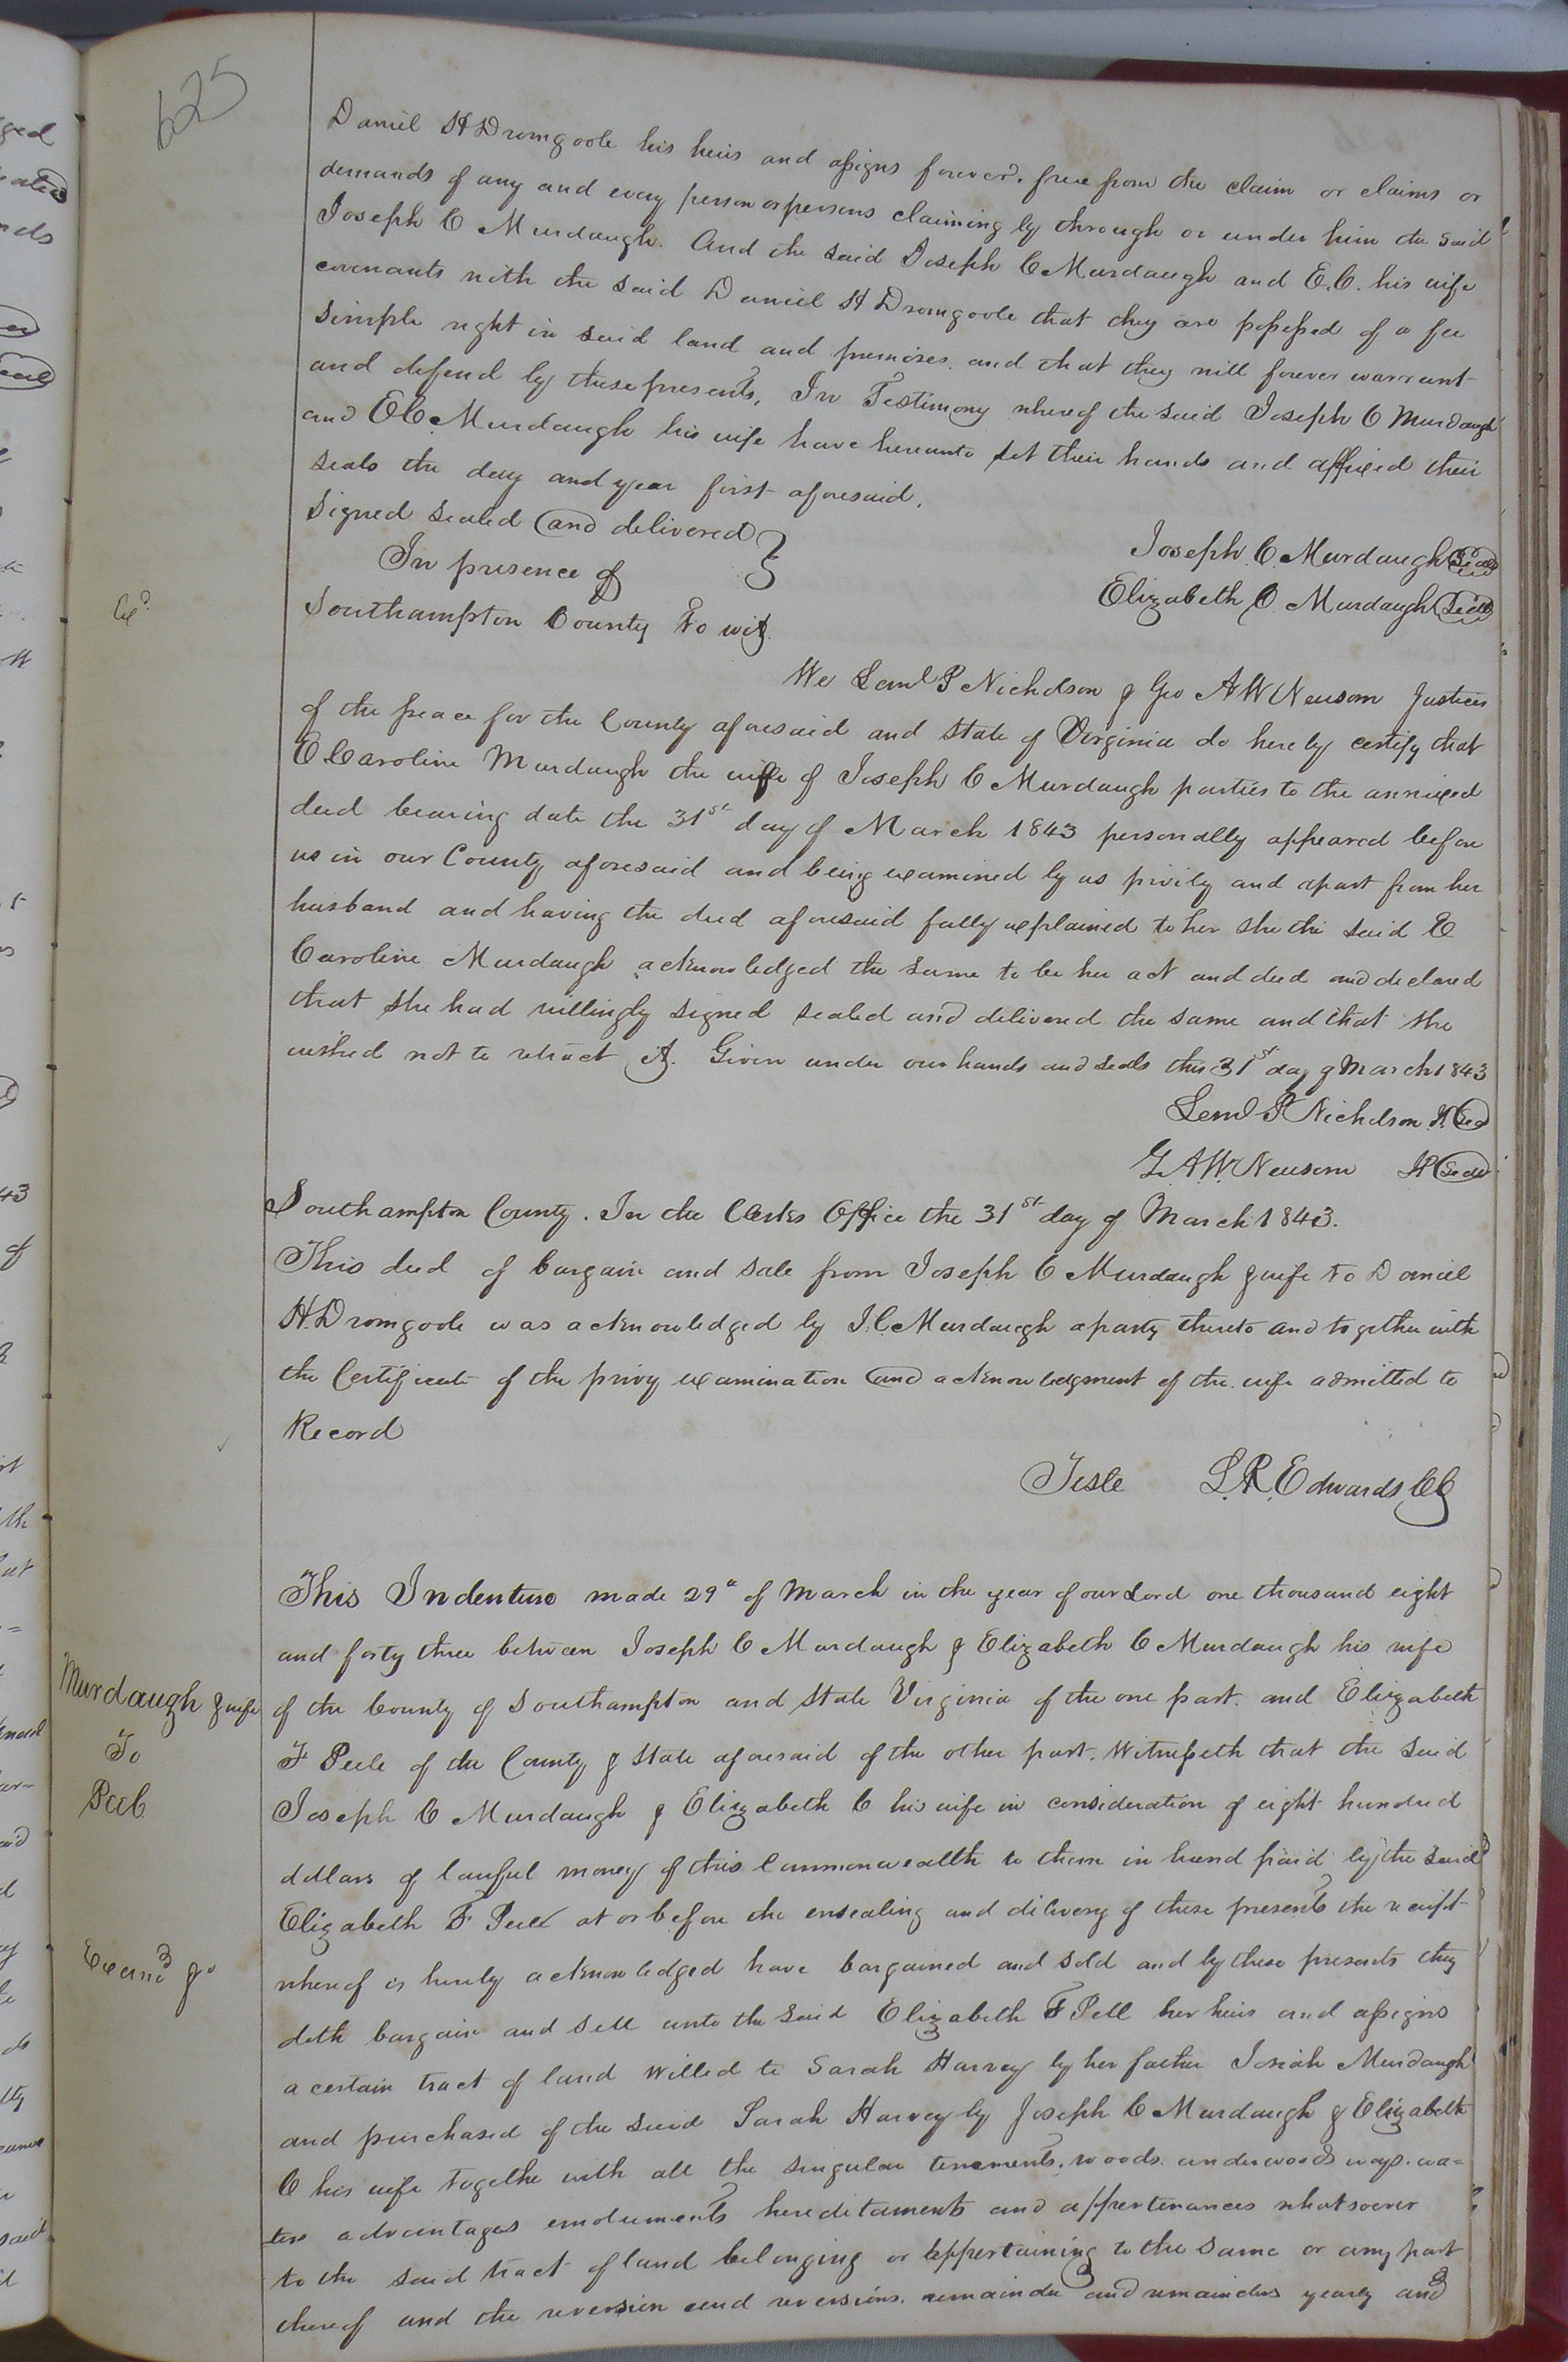 625
Daniel H Dromgoole his heirs and assigns forever. free from the claim or claims or
demands of any and every person or persons claiming by through or under him the said
Joseph C Murdaugh. And the said Joseph C Murdaugh and E.C. his wife
covenants with the said Daniel H Dromgoole that they are possessed of a fee
simple right in said land and premises. and that they will forever warrant
and defend by these presents, In Testimony whereof the said Joseph C Murdaugh
and E C. Murdaugh his wife have hereunto set their hands and affixed their
seals the day and year first aforesaid.
Signed sealed and delivered }
In presence of
Joseph C Murdaugh Seal
Elizabeth C Murdaugh Seal
Southampton County To wit
We Leml P Nicholson & Geo A W Newsom Justices
of the peace for the County aforesaid and State of Virginia do hereby certify that
E Caroline Murdaugh the wife of Joseph C Murdaugh parties to the annexed
deed bearing date the 31st day of March 1843 personally appeared before
us in our County aforesaid and being examined by us privily and apart from her
husband and having the deed aforesaid fully explained to her she the said E
Caroline Murdaugh acknowledged the same to be her act and deed and declared
that she had willingly signed sealed and delivered the same and that she
wished not to retract it. Given under our hands and seals this 31st day of March 1843
Leml P Nicholson JP Seal
G. A.W. Newsom JP Seal
Southampton County. In the Clerks Office the 31st day of March 1843.
This deed of bargain and sale from Joseph C Murdaugh & wife to Daniel
H. Dromgoole was acknowledged by J.C. Murdaugh a party thereto and together with
the Certificate of the privy examination and acknowledgment of the wife admitted to
Record
Teste L. R. Edwards CC
Murdaugh & wife
To
Peel
This Indenture made 29th of March in the year of our Lord one thousand eight
and forty three between Joseph C Murdaugh & Elizabeth C Murdaugh his wife
of the County of Southampton and State Virginia of the one part. and Elizabeth
F Peele of the County & State aforesaid of the other part. Witnesseth that the said
Joseph C Murdaugh & Elizabeth C his wife in consideration of eight hundred
dollars of lawful money of this Commonwealth to them in hand paid by the said
Elizabeth F Peel at or before the ensealing and delivery of these presents the receipt
whereof is hereby acknowledged have bargained and sold and by these presents they
doth bargain and sell unto the said Elizabeth F Pell her heirs and assigns
a certain tract of land willed to Sarah Harvey by her father Josiah Murdaugh
and purchased of the said Sarah Harvey by Joseph C Murdaugh & Elizabeth
C his wife togethe with all the singular tenements. woods. underwoods ways. wa=
ters advantages emoluments hereditaments and appertenances whatsoever
to the said tract of land belonging or appertaining to the same or any part
thereof and the reversion and reversions. remainder and remainders yearly and